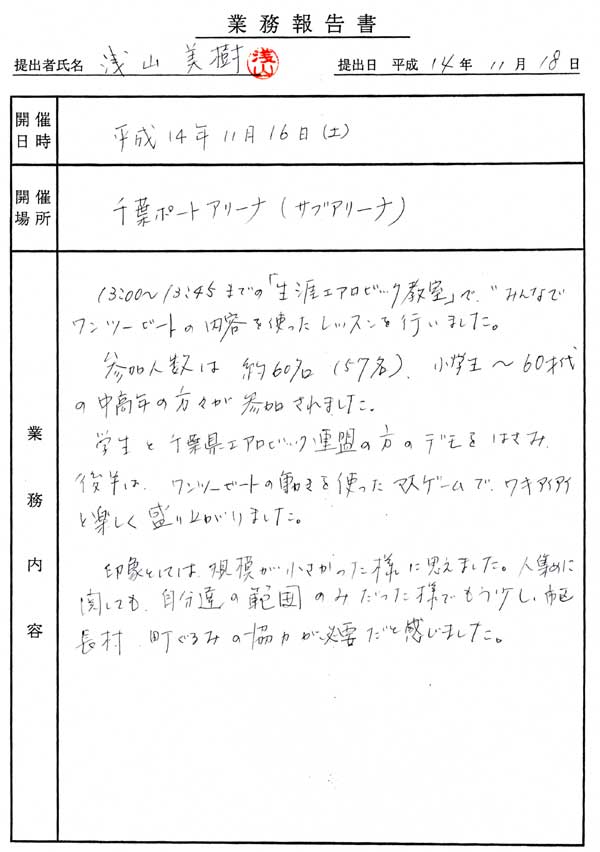 業務報告書
提出者氏名 浅山 美樹 浅山 提出日 平成 14年 11月 18日
開催日時 平成14年11月16日(土)
開催場所 千葉ポートアリーナ(サブアリーナ)
業務内容
13:00〜13:45までの「生涯エアロビック教室」で、"みんなで
ワンツービートの内容を使ったレッスンを行いました。
参加人数は 約60名(57名)、小学生〜60才代
の中高年の方々が参加されました。
学生と千葉県エアロビック連盟の方のデモをはさみ、
後半は、ワンツービートの動きを使ったマスゲームで、ワキアイアイ
と楽しく盛り上がりました。
印象としては、規模が小さかった様に思えました。人集めに
関しても、自分達の範囲のみだった様でもう少し、市区
長村、町ぐるみの協力が必要だと感じました。